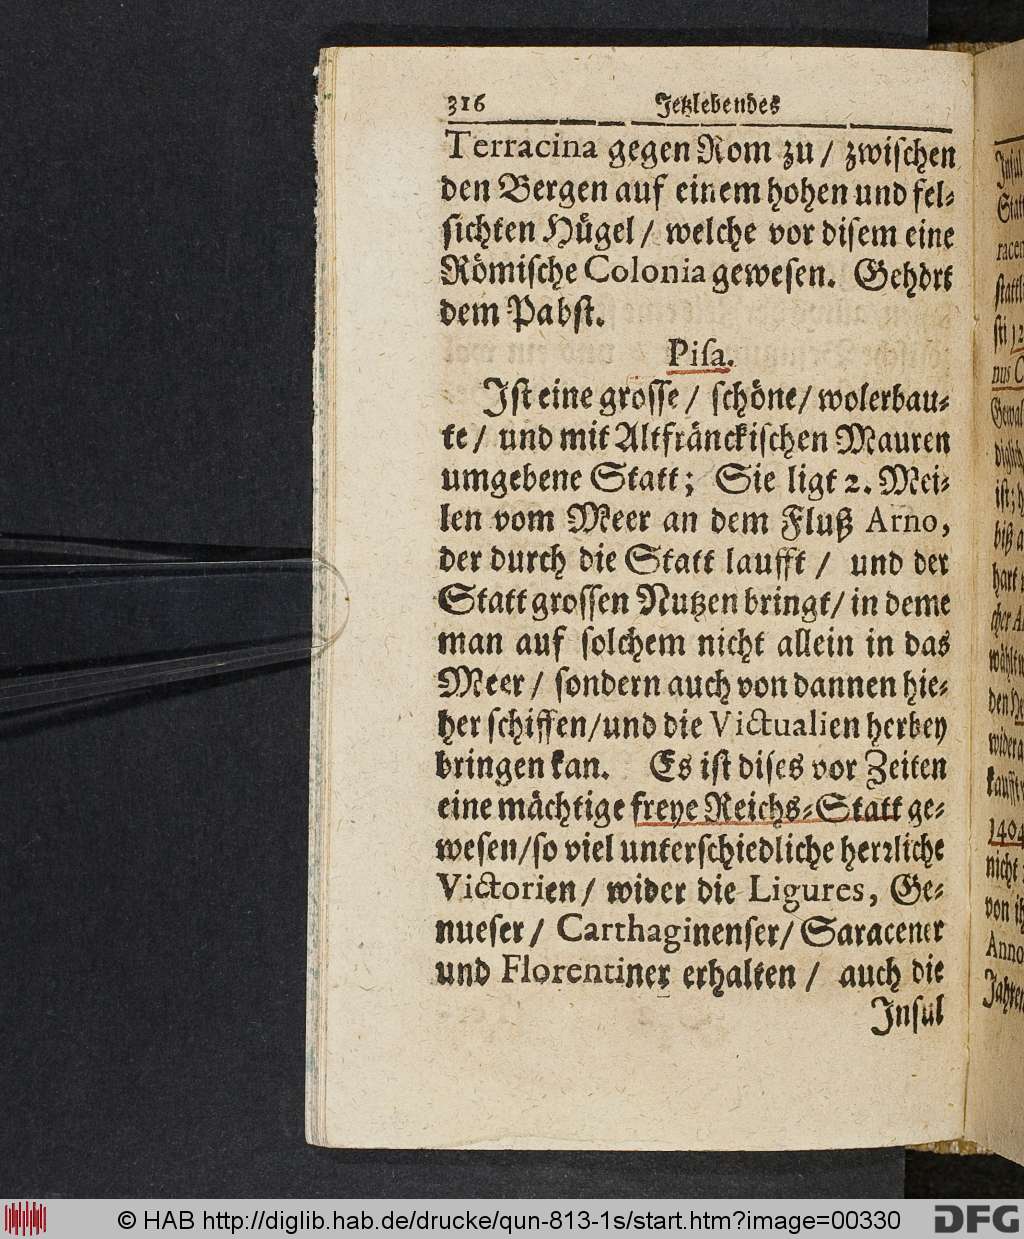 316 Jetzlebendes
Terracina gegen Rom zu / zwischen
den Bergen auf einem hohen und fel-
sichten Hügel / welche vor disem eine
Römische Colonia gewesen. Gehört
dem Pabst.
Pisa.
Ist eine grosse / schöne / wolerbau-
te / und mit Altfränckischen Mauren
umgebene Statt; Sie ligt 2. Mei-
len vom Meer an dem Fluß Arno,
der durch die Statt laufft / und der
Statt grossen Nutzen bringt / in deme
man auf solchem nicht allein in das
Meer / sondern auch von dannen hie-
her schiffen / und die Victualien herbey
bringen kan. Es ist dises vor Zeiten
eine mächtige freye Reichs-Statt ge-
wesen / so viel unterschiedliche herrliche
Victorien / wider die Ligures, Ge-
nueser / Carthaginenser / Saracener
und Florentiner erhalten / auch die
Insul
Insul
Statt
racen
stattl
sti 12
nus C
Gewal
diglich
ist; h
biß a
hart
cher A
wählt
den He
widera
kaufft
1404
nicht
von ih
Anno
Jahren
© HAB http://diglib.hab.de/drucke/qun-813-1s/start.htm?image=00330
DFG